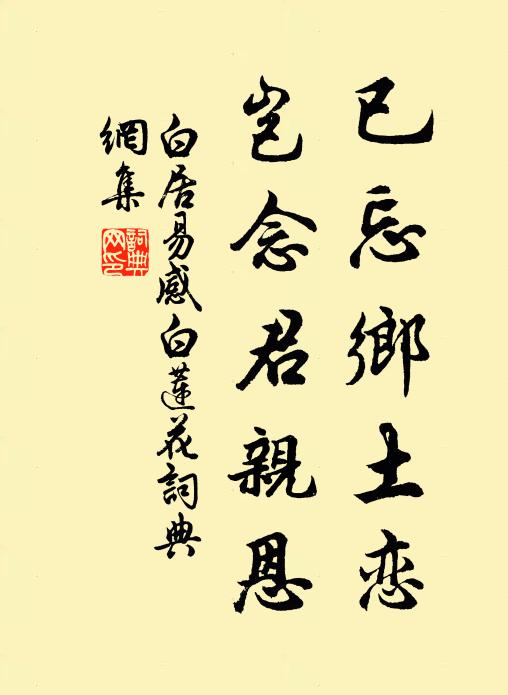 已忘鄉土恋
豈念君親恩
白居易感白蓮花詞典
網集
詞典網印